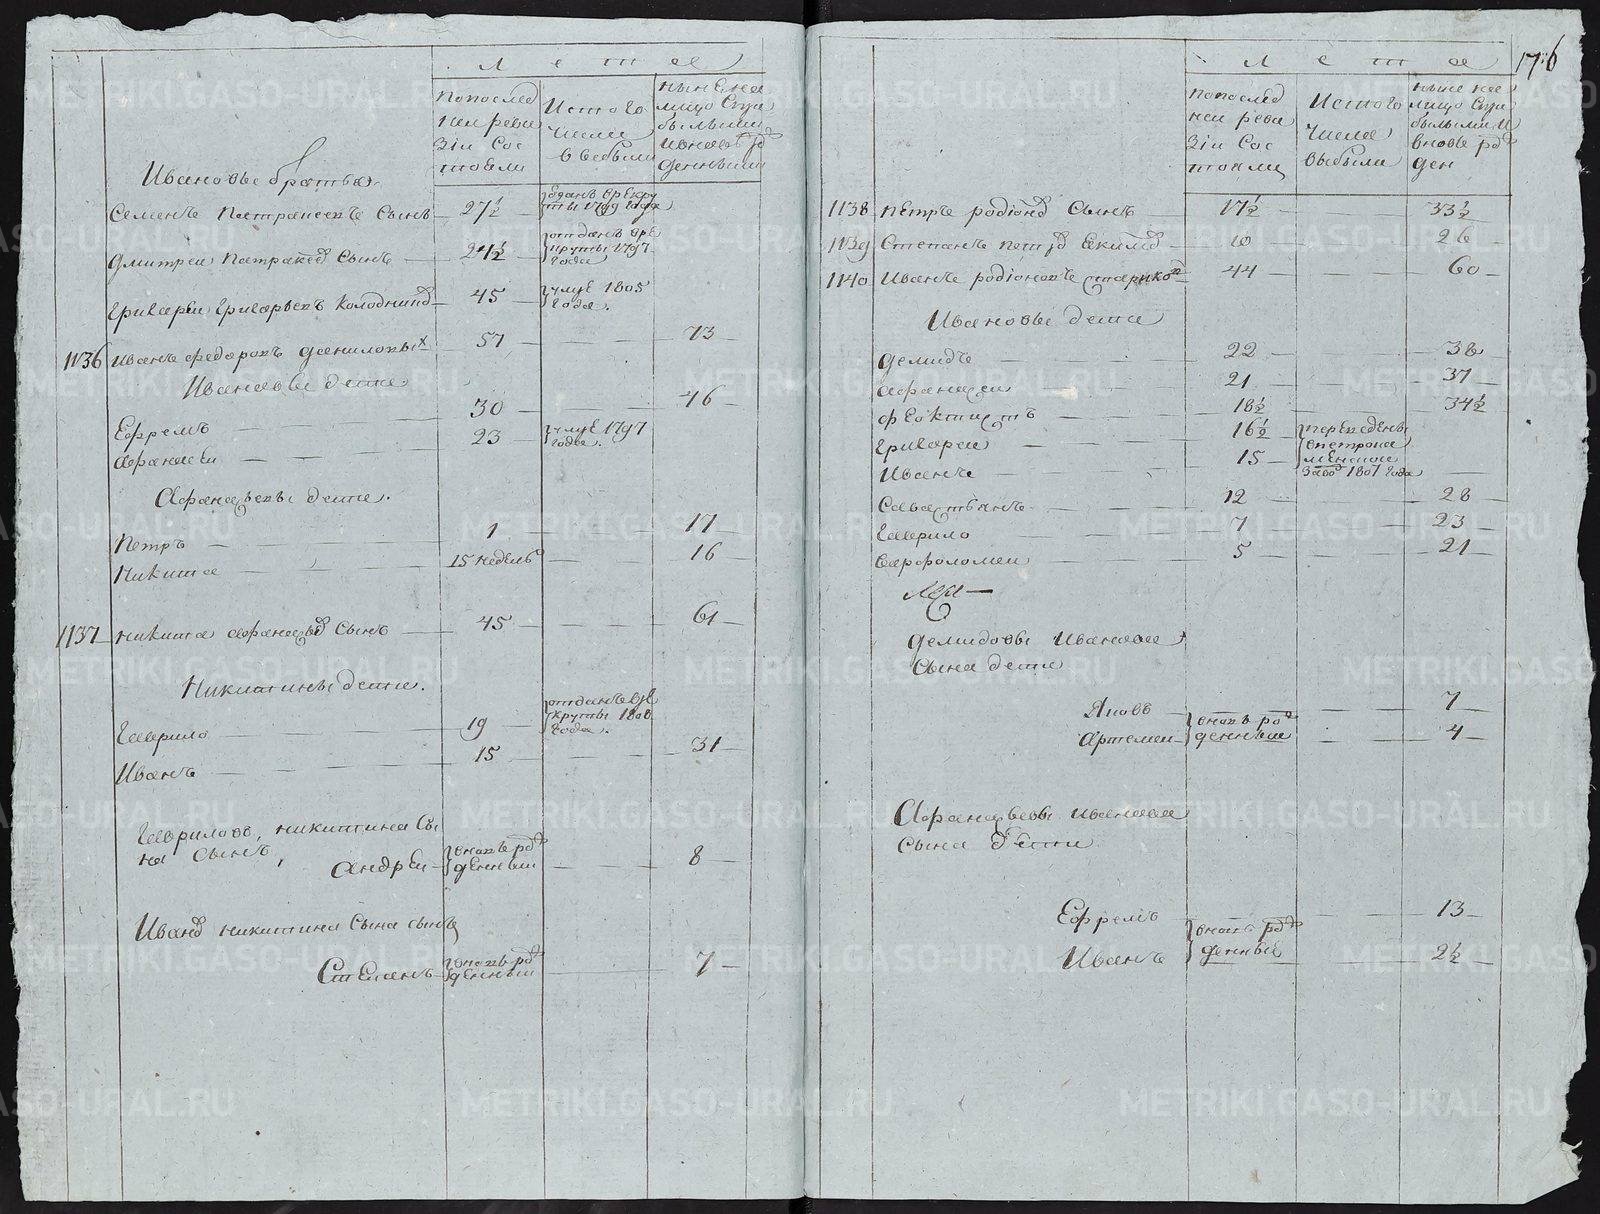 Лета
По послед
ней реви
зіи сос
тояли
Ис того
числа
выбыли
ныне на
лицо с при
былыми
и вновь рож
денными
Ивановы братья
Семенъ Патракеевъ сынъ — 27½ отданъ в рекру
ты 1799 года
Дмитреи Патракеев сынъ — 24½ отданъ в ре
круты 1797
года
Григореи Григорьевъ Колодкин — 45 — умре 1805
года.
1136 Иванъ Федоровъ Даниловых — 57 — 73
Ивановы дети
Ефремъ — 30 — 46
Афанасеи — 23 умре 1797
года.
Афанасьевы дети.
Петръ — 1 — 17
Никита — 15 недель — 16
1137 Никита Афанасьев сынъ — 45 — 61
Никитины дети.
Гаврило — 19 — отданъ в ре
круты 1808
года.
Иванъ — 15 — 31
Гаврилова Никитина сы
на сынъ, Андреи — вновь рож
денныи — 8
Иванова Никитина сына сынъ
Степанъ — вновь рож
денныи — 7
176
Лета
По послед
ней реви
зіи сос
тояли
Ис того
числа
выбыли
ныне на
лицо с при
былыми и
вновь рож
ден
1138 Петръ Родіонов сынъ — 17½ — 33½
1139 Степанъ Петров Екимов — 10 — 26
1140 Иванъ Родіоновъ Стариков — 44 — 60
Ивановы дети
Демидъ — 22 — 38
Афанасеи — 21 — 37
Феоктистъ — 18½ — 34½
Григореи — 16½ переведены
в Петрока
менскои
завод 1801 года
Иванъ — 15
Савастьянъ — 12 — 28
Гаврило — 7 — 23
Варфоломеи — 5 — 21
Демидовы Иванова
сына дети
Яковъ — 7
Артемеи — вновь рож
денныи — 4
Афанасьевы Иванова
сына дети
Ефремъ — 13
Иванъ вновь рож
денные — 2½